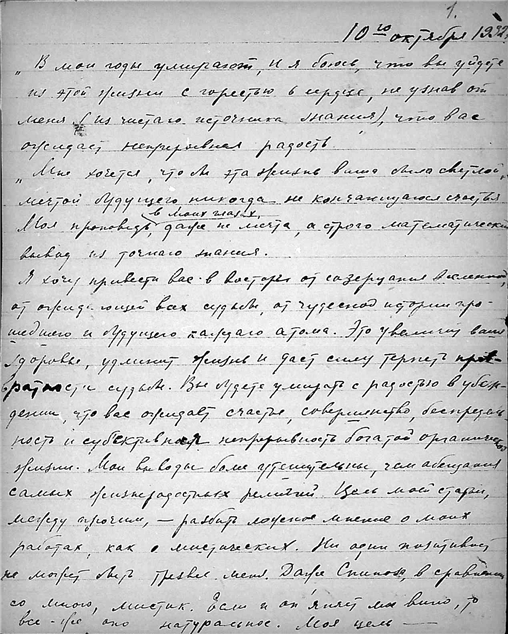 1.
10го октября 1932г
„В мои годы умирают, и я боюсь, что вы уйдете
из этой жизни с горестью в сердце, не узнав от
меня (из чистаго источника знания), что вас
ожидает непрерывная радость.
„Мне хочется, чтобы эта жизнь ваша была светлой
мечтой будущего, никогда не кончающегося счастья
в моих глазах,
Моя проповедь, даже не мечта, а строго математический
вывод из точнаго знания.
Я хочу привести вас в восторг от созерцания вселенной,
от ожидающей всех судьбы, от чудесной истории про-
шедшего и будущего каждаго атома. Это увеличит ваше
здоровье, удлинит жизнь и даст силу терпеть прев-
ратности судьбы. Вы будете умирать с радостью в убеж-
дении, что вас ожидает счастье, совершенство, беспредель-
ность и субективная непрерывность богатой органической
жизни. Мои выводы более утешительны, чем обещания
самых жизнерадостных религий. Цель моей статьи,
между прочим, — разбить ложное мнение о моих
работах, как о мистических. Ни один позитивист
не может быть трезвее меня. Даже Спиноза в сравнении
со мною, мистик. Если и опьяняет мое вино, то
все-же оно натуральное. Моя цель —